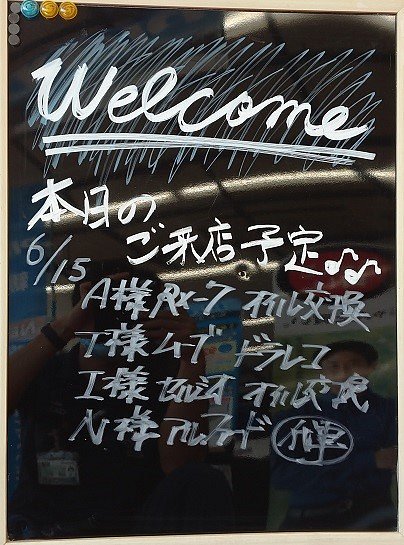 Welcome
本日の
ご来店予定♪♫
6/15
A様 RX-7 オイル交換
T様 ムーブ ドラレコ
I様 セルシオ オイル交換
N様 アルファード 作業